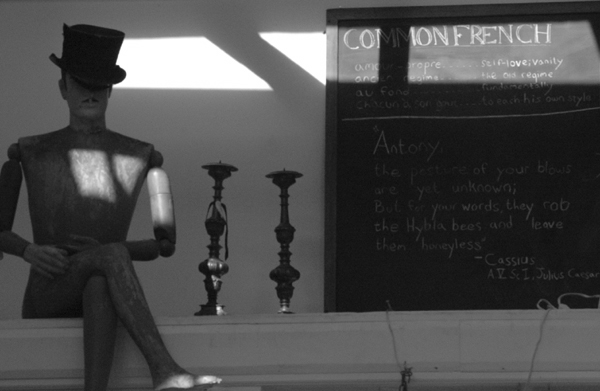 COMMON FRENCH
amour propre........self-love; vanity
ancien regime......the old regime
au fond............fundamentally
chacun a son gout....to each his own style
"Antony,
the posture of your blows
are yet unknown;
But for your words, they rob
the Hybla bees and leave
them honeyless"
-Cassius
A.V Sc I, Julius Caesar